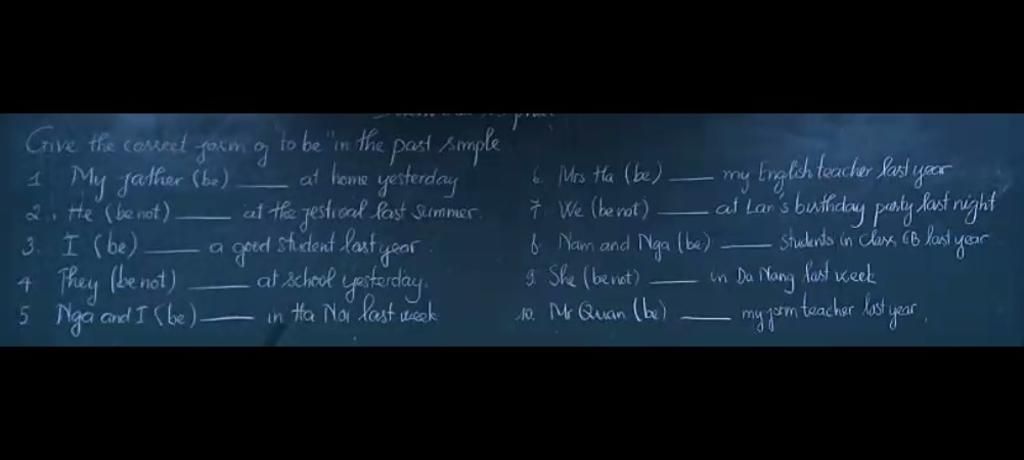 Give the correct form of "to be" in the past simple
1 My father (be) ____ at home yesterday
2. He (be not) ____ at the festival last summer.
3. I (be) ____ a good student last year.
4 They (be not) ____ at school yesterday.
5 Nga and I (be) ____ in Ha Noi last week
6. Mrs Ha (be) ____ my English teacher last year
7. We (be not) ____ at Lan's birthday party last night
8 Nam and Nga (be) ____ students in class 6B last year
9. She (be not) ____ in Da Nang last week
10. Mr Quan (be) ____ my form teacher last year.